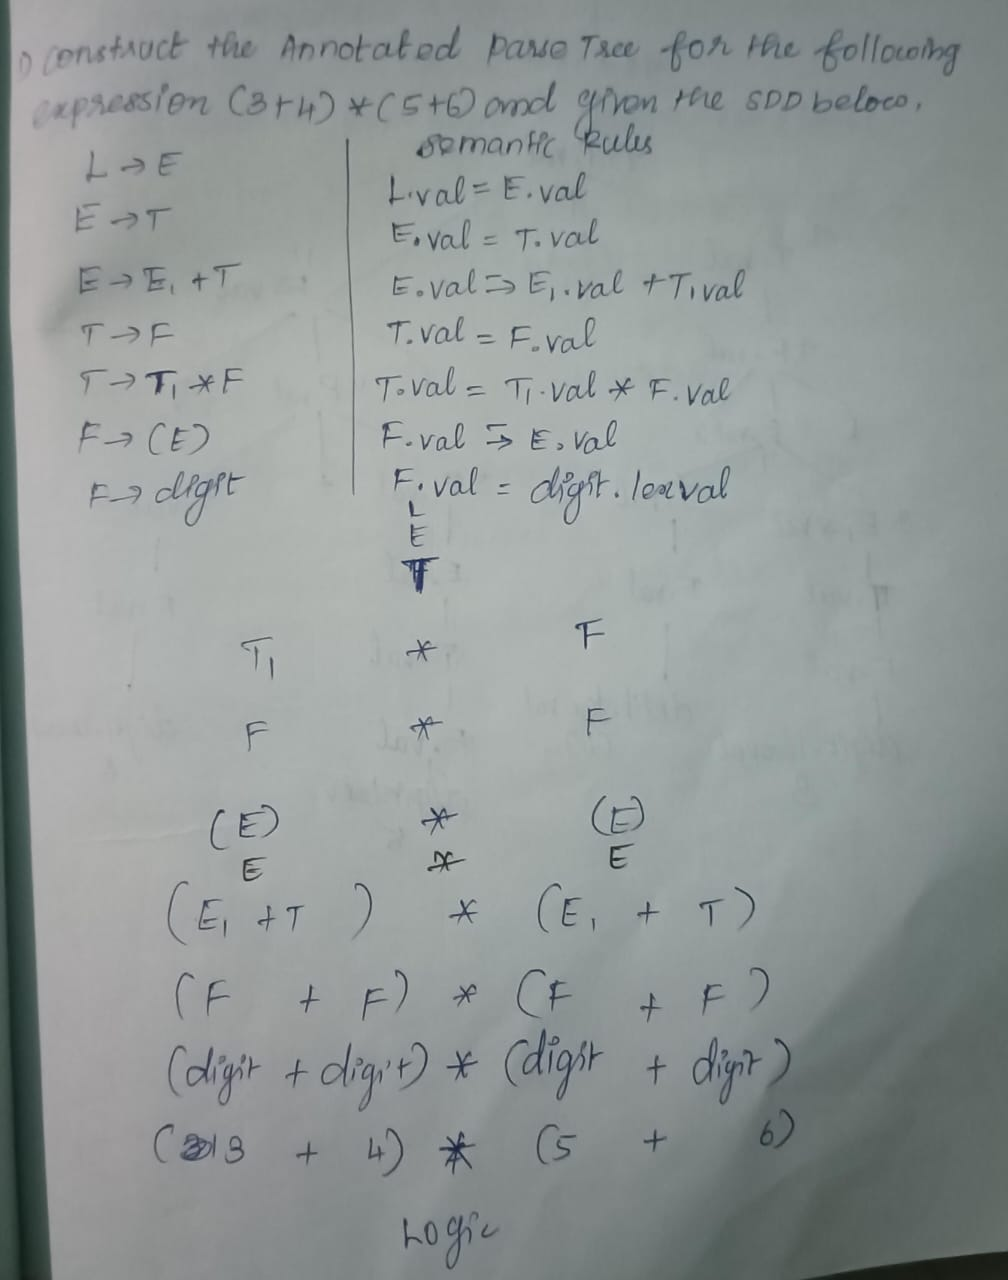 1) construct the Annotated Parse Tree for the following
expression (3+4) * (5+6) and given the SDD below.
Semantic Rules
L → E L.val = E.val
E → T E.val = T.val
E → E₁ + T E.val => E₁.val + T₁val
T → F T.val = F.val
T → T₁ * F T.val = T₁.val * F.val
F → (E) F.val => E.val
F → digit F.val = digit.lexval
L
E
T
T₁ * F
F * F
(E) * (E)
E * E
(E₁ + T) * (E₁ + T)
(F + F) * (F + F)
(digit + digit) * (digit + digit)
(3 + 4) * (5 + 6)
Logic